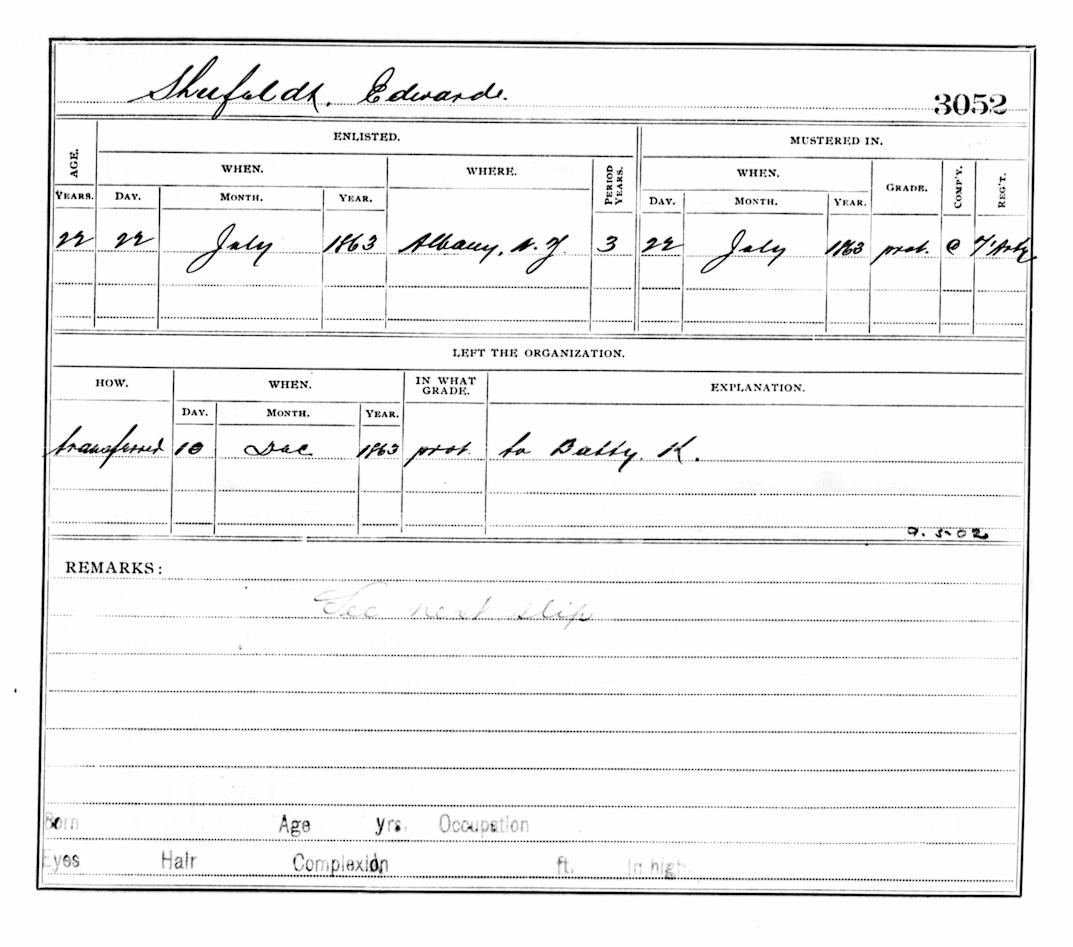 Shufeldt, Edward.
3052
ENLISTED. MUSTERED IN.
AGE. WHEN. WHERE. PERIOD YEARS. WHEN. GRADE. COMP'Y. REG'T.
YEARS. DAY. MONTH. YEAR. DAY. MONTH. YEAR.
22 22 July 1863 Albany, N.Y. 3 22 July 1863 prvt. C 7' Arty
LEFT THE ORGANIZATION.
HOW. WHEN. IN WHAT GRADE. EXPLANATION.
DAY. MONTH. YEAR.
transferred 10 Dec 1863 prvt. to Batty. K.
9.5-02
REMARKS:
See next slip
Born Age yrs. Occupation
Eyes Hair Complexion ft. In high